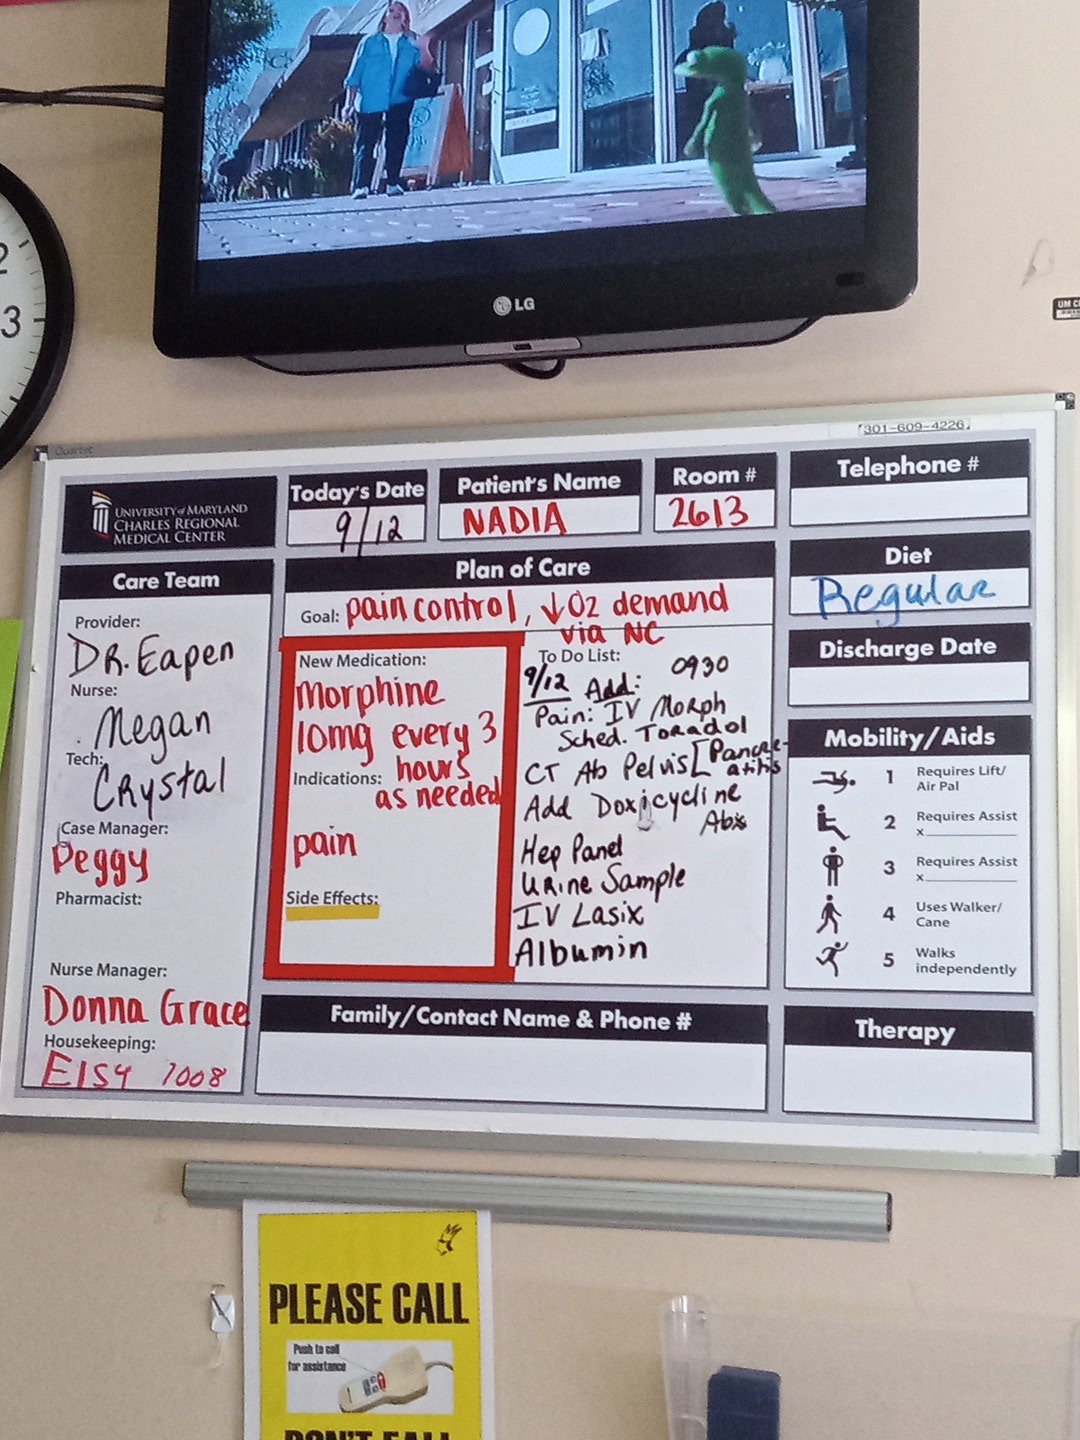 2
3
LG
UM C
Quartet
301-609-4226
UNIVERSITY of MARYLAND
CHARLES REGIONAL
MEDICAL CENTER
Today's Date
9/12
Patient's Name
NADIA
Room #
2613
Telephone #
Care Team
Provider:
DR. Eapen
Nurse:
Megan
Tech:
Crystal
Case Manager:
Peggy
Pharmacist:
Nurse Manager:
Donna Grace
Housekeeping:
Elsy 7008
Plan of Care
Goal: pain control, ↓O2 demand
via NC
New Medication:
Morphine
10mg every 3
hours
Indications:
as needed
pain
Side Effects:
To Do List:
9/12 Add: 0930
Pain: IV Morph
Sched. Toradol
CT Ab Pelvis [Pancre-
atitis
Add Doxicycline
Abx
Hep Panel
Urine Sample
IV Lasix
Albumin
Diet
Regular
Discharge Date
Mobility/Aids
1 Requires Lift/
Air Pal
2 Requires Assist
x
3 Requires Assist
x
4 Uses Walker/
Cane
5 Walks
independently
Family/Contact Name & Phone #
Therapy
PLEASE CALL
Push to call
for assistance
DON'T FALL